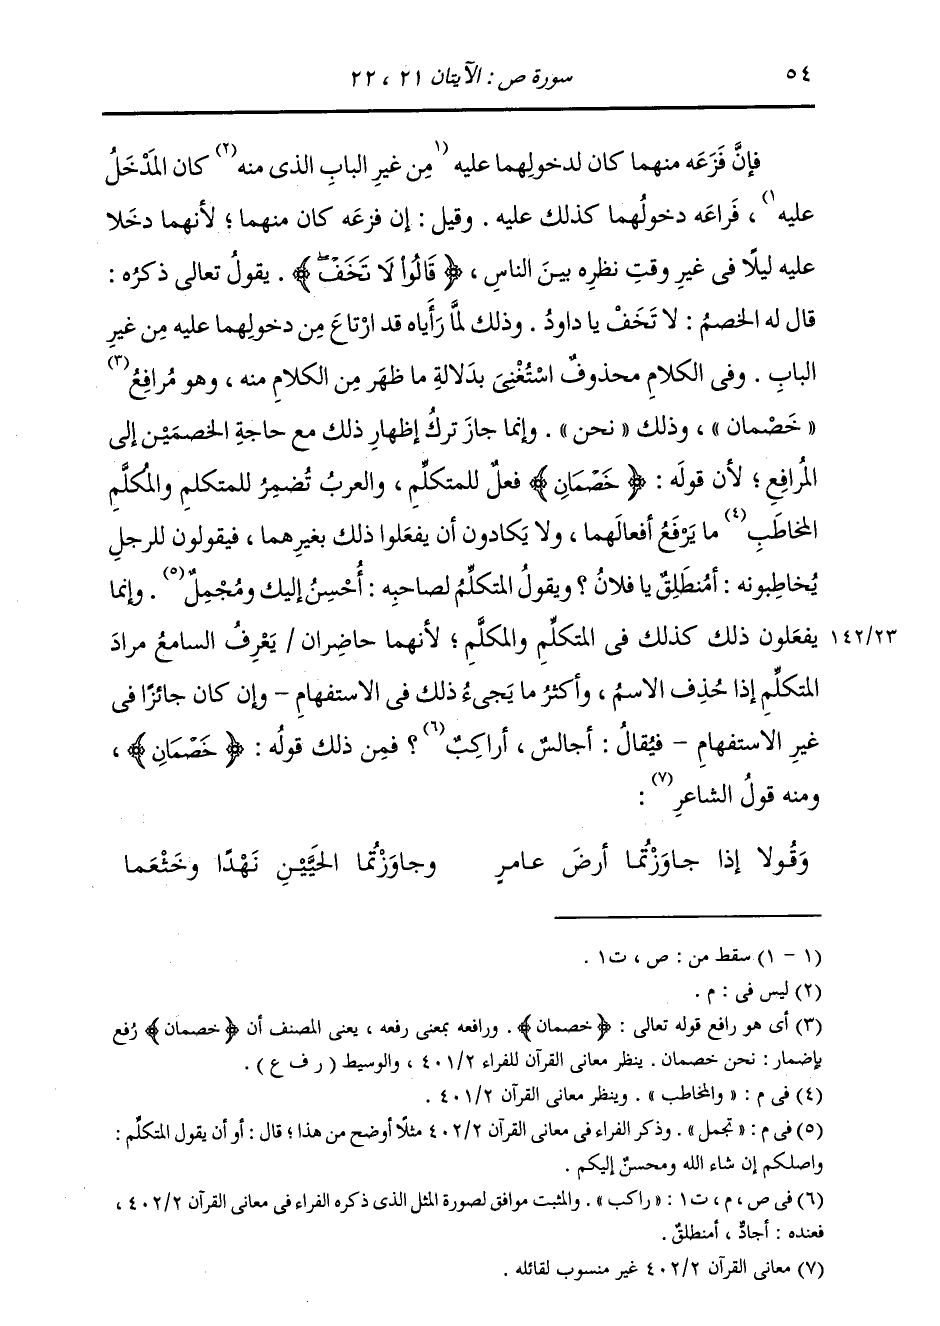 ٥٤ سورة ص : الآيتان ٢١ ، ٢٢
فإنَّ فَزَعَه منهما كان لدخولِهما عليه (١ مِن غيرِ البابِ الذى منه (٢) كان المَدْخَلُ
عليه ١) ، فَراعَه دخولُهما كذلك عليه . وقيل : إن فزعَه كان منهما ؛ لأنهما دخَلا
عليه ليلًا فى غيرِ وقتِ نظرِه بينَ الناسِ ، ﴿ قَالُواْ لَا تَخَفْ ﴾ . يقولُ تعالى ذكرُه :
قال له الخصمُ : لا تَخَفْ يا داودُ . وذلك لمَّا رَأَياه قد ارْتاعَ مِن دخولِهما عليه مِن غيرِ
البابِ . وفى الكلامِ محذوفٌ اسْتُغْنِىَ بدَلالةِ ما ظهَر مِن الكلامِ منه ، وهو مُرافِعُ (٣)
« خَصْمان » ، وذلك « نحن » . وإنما جازَ تركُ إظهارِ ذلك مع حاجةِ الخصمَيْن إلى
المُرافِعِ ؛ لأن قولَه : ﴿ خَصْمَانِ ﴾ فعلٌ للمتكلِّمِ ، والعربُ تُضمِرُ للمتكلمِ والمُكلَّمِ
المخاطَبِ (٤) ما يَرْفَعُ أفعالَهما ، ولا يَكادون أن يفعَلوا ذلك بغيرِهما ، فيقولون للرجلِ
يُخاطِبونه : أمُنطَلِقٌ يا فلانُ ؟ ويقولُ المتكلِّمُ لصاحبِه : أُحْسِنُ إليك ومُجْمِلٌ (٥) . وإنما
١٤٢/٢٣ يفعَلون ذلك كذلك فى المتكلِّمِ والمكلَّمِ ؛ لأنهما حاضِران / يَعْرِفُ السامعُ مرادَ
المتكلِّمِ إذا حُذِف الاسمُ ، وأكثرُ ما يَجىءُ ذلك فى الاستفهامِ – وإن كان جائزًا فى
غيرِ الاستفهامِ – فيُقالُ : أجالسٌ ، أراكِبٌ (٦) ؟ فمِن ذلك قولُه : ﴿ خَصْمَانِ ﴾ ،
ومنه قولُ الشاعرِ (٧) :
وَقُولا إذا جاوَزْتُما أرضَ عامرٍ وجاوَزْتُما الحَيَّيْنِ نَهْدًا وخَثْعَما
(١ - ١) سقط من : ص ، ت١ .
(٢) ليس فى : م .
(٣) أى هو رافع قوله تعالى : ﴿ خصمان ﴾ . ورافعه بمعنى رفعه ، يعنى المصنف أن ﴿ خصمان ﴾ رُفع
بإضمار : نحن خصمان . ينظر معانى القرآن للفراء ٤٠١/٢ ، والوسيط ( ر ف ع ) .
(٤) فى م : « والمخاطب » . وينظر معانى القرآن ٤٠١/٢ .
(٥) فى م : « تجمل » . وذكر الفراء فى معانى القرآن ٤٠٢/٢ مثلًا أوضح من هذا ؛ قال : أو أن يقول المتكلِّم :
واصلكم إن شاء الله ومحسنٌ إليكم .
(٦) فى ص ، م ، ت١ : « راكب » . والمثبت موافق لصورة المثل الذى ذكره الفراء فى معانى القرآن ٤٠٢/٢ ،
فعنده : أجادٌّ ، أمنطلقٌ .
(٧) معانى القرآن ٤٠٢/٢ غير منسوب لقائله .